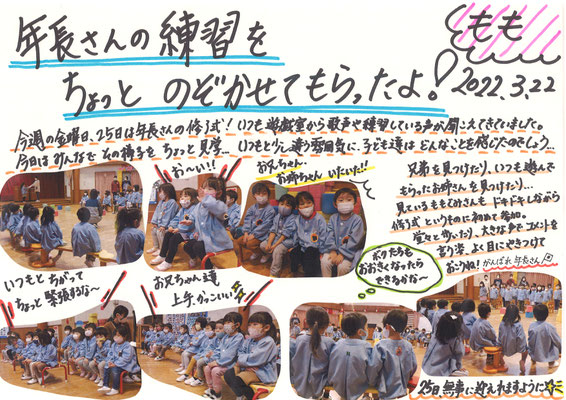 年長さんの練習を
ちょっと のぞかせてもらったよ!
もも
2022.3.22
今週の金曜日、25日は年長さんの修了式!いつも遊戯室から歌声や練習している声が聞こえてきていました。
今日はみんなで その様子を ちょっと見学… いつもと少し違う雰囲気に、子ども達は どんなことを感じたのでしょう…
お〜い!!
お兄ちゃん、
お姉ちゃん いたいた!!
兄弟を見つけたり、いつも遊んで
もらったお姉さんを見つけたり…
見ているももぐみさんも ドキドキしながら
修了式というものに初めて参加。
堂々と歩いたり、大きな声でコメントを
言う姿、よく目にやきつけて
おこうね!がんばれ年長さん!
ボクたちも
おおきくなったら
できるかな〜
いつもと ちがって
ちょっと 緊張するな〜
お兄ちゃん達
上手、かっこいい
25日 無事に迎えれますように